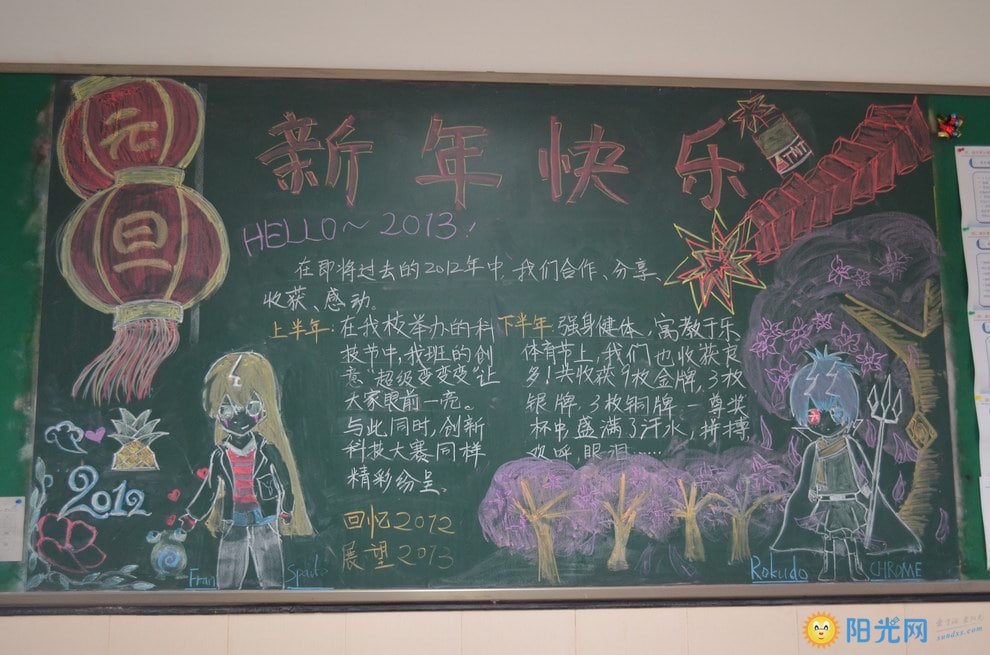 元
旦
新年快乐
HELLO~2013!
在即将过去的2012年中,我们合作、分享、
收获、感动.
上半年:在我校举办的科
技节中,我班的创
意"超级变变变"让
大家眼前一亮。
与此同时,创新
科技大赛同样
精彩纷呈.
下半年:强身健体、寓教于乐
体育节上,我们也收获良
多!共收获9枚金牌.3枚
银牌.3枚铜牌.一尊奖
杯中,盛满了汗水,拼搏
欢呼.眼泪……
回忆2012
展望2013
2012
Fran
Rokudo
CHROME
阳光网
sundxs.com